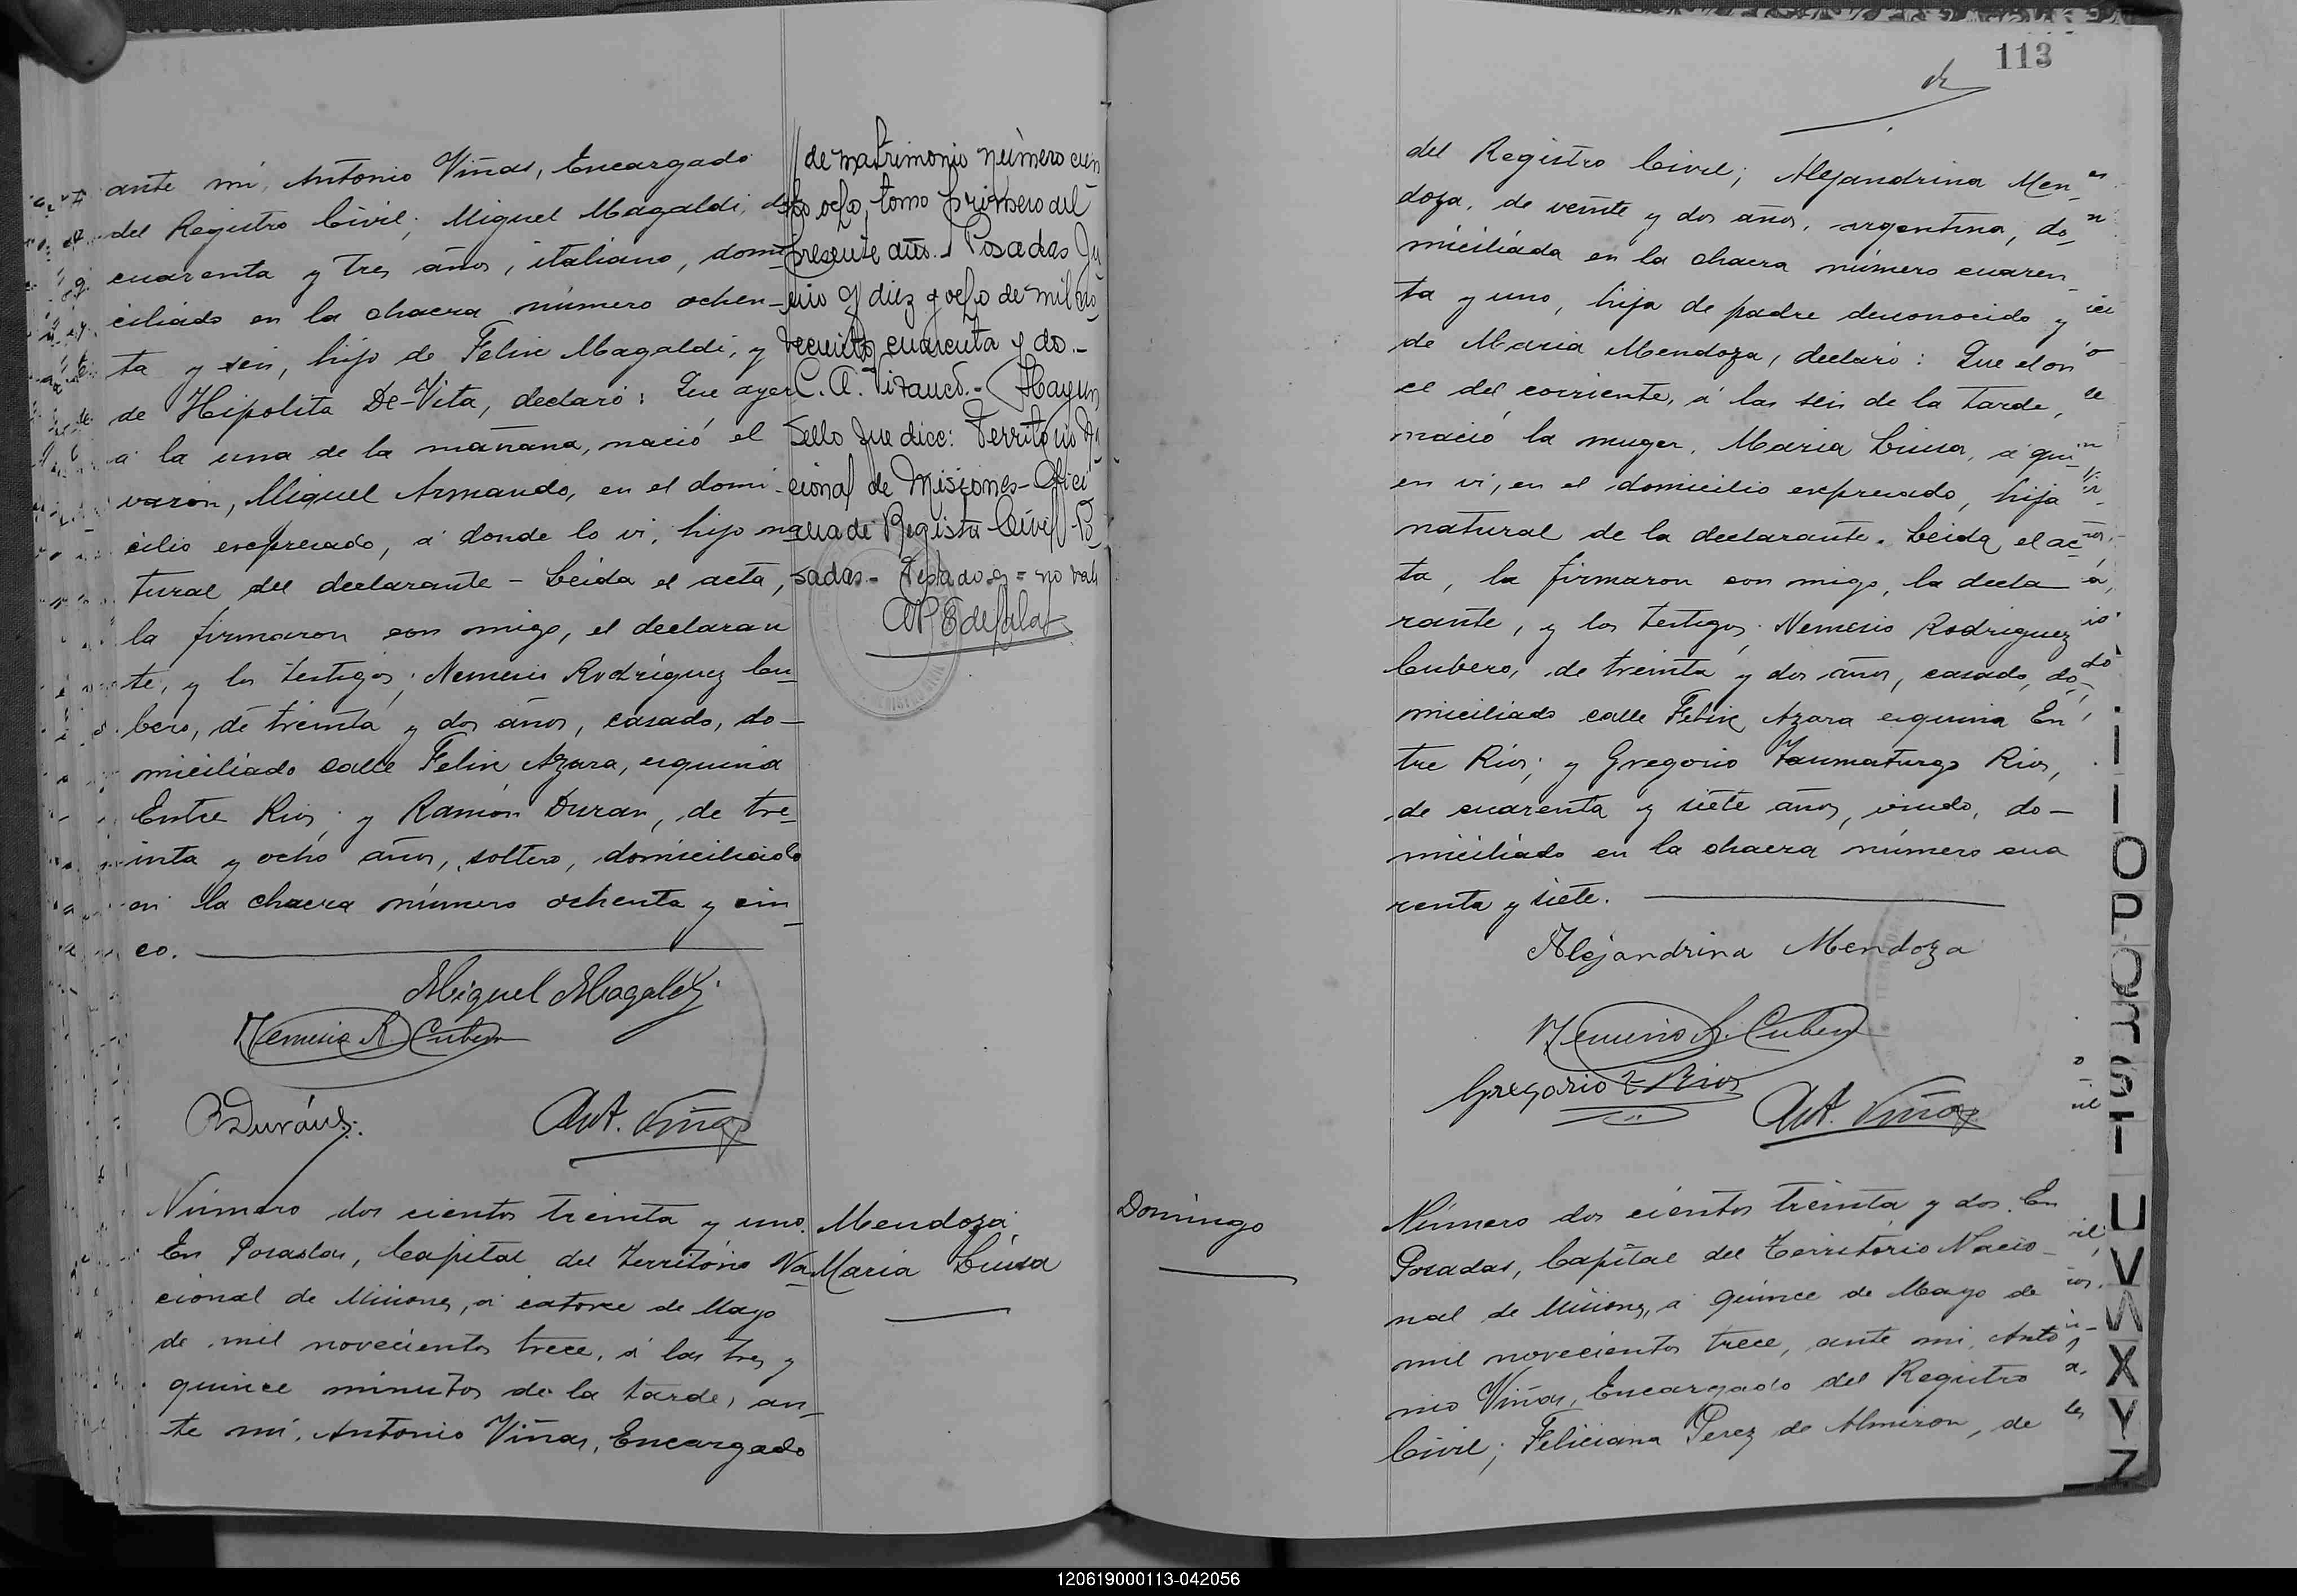 ante mí, Antonio Viñas, Encargado
del Registro Civil; Miguel Magaldi, de
cuarenta y tres años, italiano, domi-
ciliado en la chacra número ochen-
ta y seis, hijo de Felix Magaldi, y
de Hipolita De-Vita, declaró: Que ayer
á la una de la mañana, nació el
varón, Miguel Armando, en el domi-
cilio expresado, á donde lo vi, hijo na-
tural del declarante - Leida el acta,
la firmaron con migo, el declaran
te, y los testigos; Nemesio Rodríguez Cu-
bero, de treinta y dos años, casado, do-
miciliado calle Felix Azara, esquina
Entre Rios; y Ramón Duran, de tre-
inta y ocho años, soltero, domiciliado
en la chacra número ochenta y cin-
co.
Miguel Magaldi
Nemesio R. Cubero
R Durán
Ant. Viñas
Número dos cientos treinta y uno.
En Posadas, Capital del Territorio Na-
cional de Misiones, á catorce de Mayo
de mil novecientos trece, á las tres y
quince minutos de la tarde, an-
te mí, Antonio Viñas, Encargado
de matrimonio número cien
to ocho, tomo primero del
presente año. Posadas Ju
nio diez y ocho de mil no
vecientos cuarenta y dos.-
C. A. - Hay un
sello que dice: Territorio Na
cional de Misiones - Ofici
na de Registro Civil - Po
sadas - Testado = no vale
Mendoza
Maria Luisa
113
del Registro Civil; Alejandrina Men-
doza, de veinte y dos años, argentina, do-
miciliada en la chacra número cuaren-
ta y uno, hija de padre desconocido y
de Maria Mendoza, declaró: Que el on
ce del corriente, á las seis de la tarde,
nació la muger, Maria Luisa, á qui-
en vi, en el domicilio expresado, hija
natural de la declarante. Leida el ac-
ta, la firmaron con migo, la decla
rante, y los testigos; Nemesio Rodriguez
Cubero, de treinta y dos años, casado, do-
miciliado calle Felix Azara esquina En
tre Rios; y Gregorio Taumaturgo Rios,
de cuarenta y siete años, viudo, do-
miciliado en la chacra número cua
renta y siete.
Alejandrina Mendoza
Nemesio R. Cubero
Gregorio T Rios
Ant. Viñas
Domingo
Número dos cientos treinta y dos. En
Posadas, Capital del Territorio Nacio-
nal de Misiones, á quince de Mayo de
mil novecientos trece, ante mi, Anto
nio Viñas, Encargado del Registro
Civil; Feliciana Perez de Almiron, de
O
P
Q
R
S
T
U
V
W
X
Y
Z
120619000113-042056